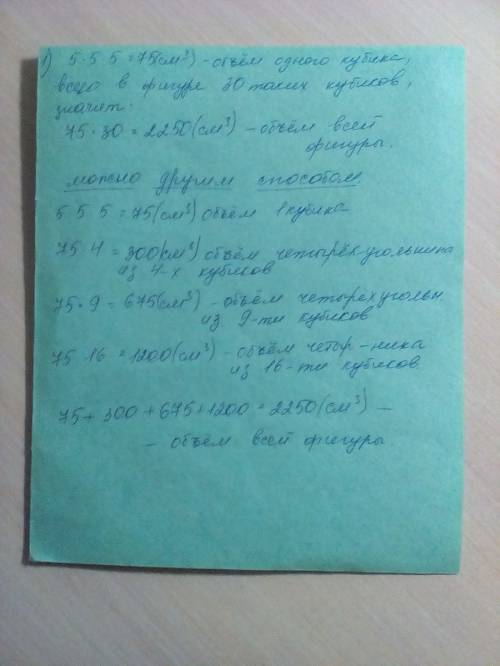 1) 5·5·5=75(см³) - объём одного кубика,
всего в фигуре 30 таких кубиков,
значит:
75·30=2250(см³) - объём всей
фигуры.
можно другим способом.
5·5·5=75(см³) объём 1 кубика
75·4=300(см³) объём четырёхугольника
из 4-х кубиков
75·9=675(см³) - объём четырёхугольн.
из 9-ти кубиков
75·16=1200(см³) - объём четыр-ника
из 16-ти кубиков
75+300+675+1200=2250(см³) -
- объём всей фигуры.